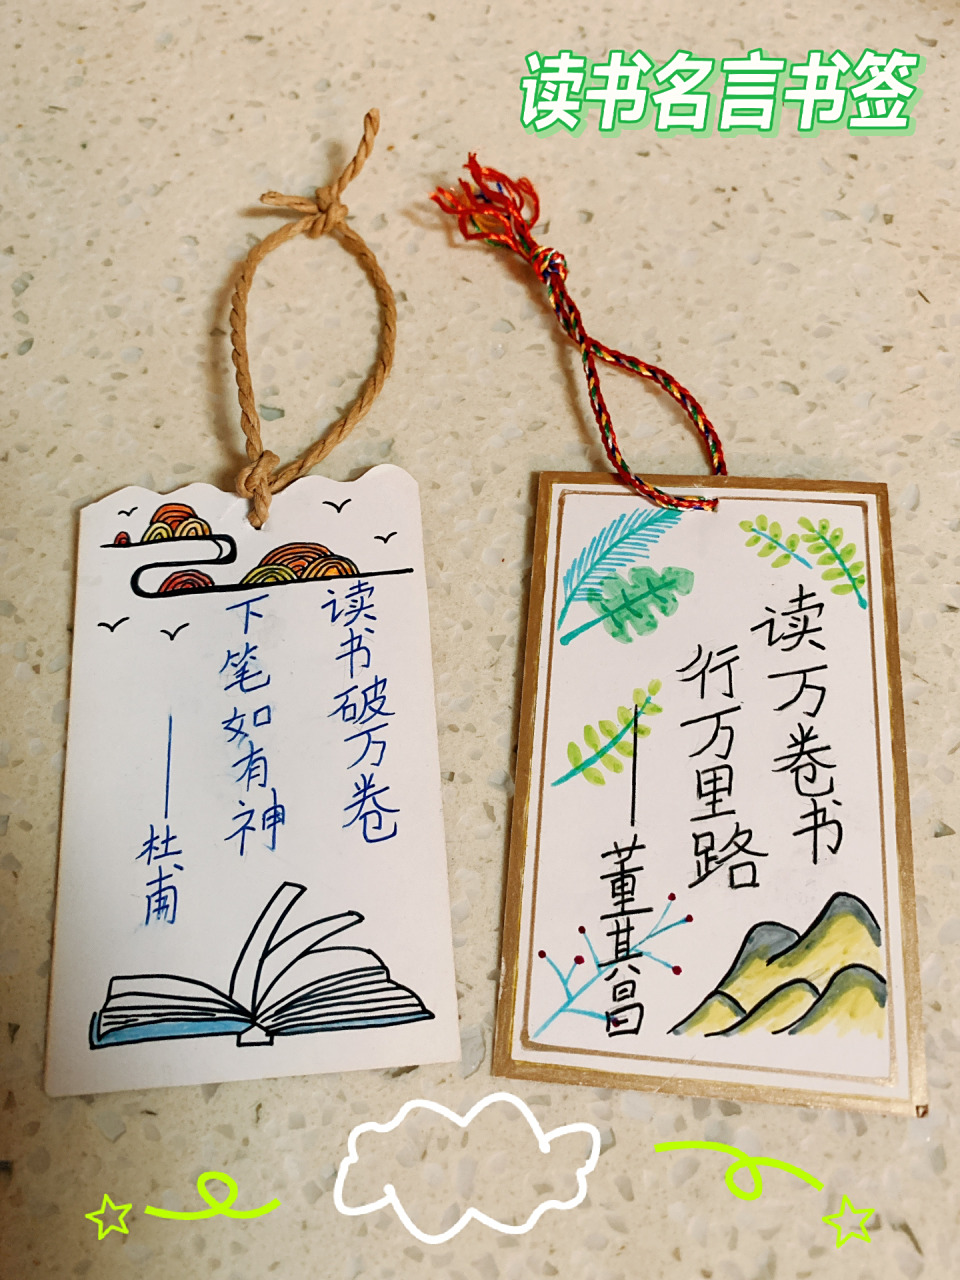 读书名言书签
读书破万卷
下笔如有神
——杜甫
读万卷书
行万里路
——董其昌